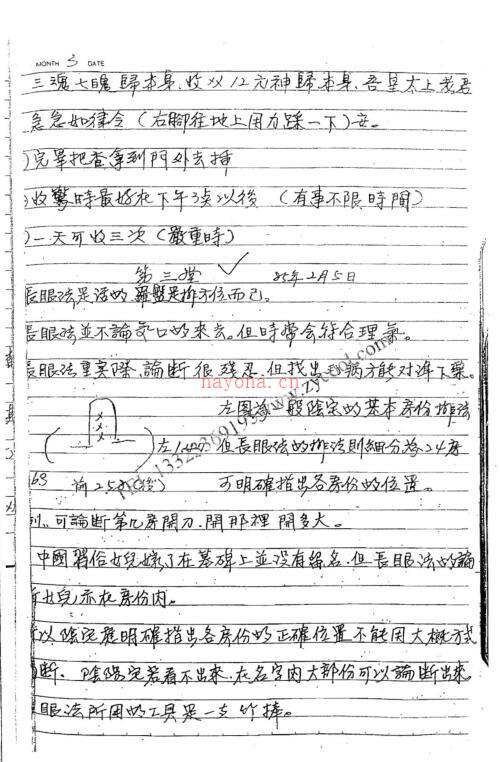 MONTH 3 DATE
三魂七魄歸本身,收父12元神歸本身,吾呈太上老君
急急如律令(右腳往地上用力踩一下)安。
)完畢把香拿到門外去插
)收驚時最好在下午3点以後(有事不限時間)
)一天可收三次(嚴重時)
第三堂 ✓ 85年2月5日
長眼法是活的羅盤是排方位而已。
長眼法並不論交口的來去。但時常会符合理氣。
長眼法重實際,論斷很殘忍,但找出毛病方能对症下藥。
左图為一般陰宅的基本房份排法
左1.4.7 但長眼法的排法則細分為24房
前2.5.8(後) 可明確指出各房份的位置。
可論斷第几房開刀.開那裡開多大。
中國習俗女兒嫁了在墓碑上並沒有編名.但長眼法的論
女兒亦在房份內。
以陰宅應明確指出各房份的正確位置不能用大概方式
斷. 陰陽宅若看不出來.在名字內大部份可以論斷出來。
眼法所用的工具是一支竹捧。
hayona.cn